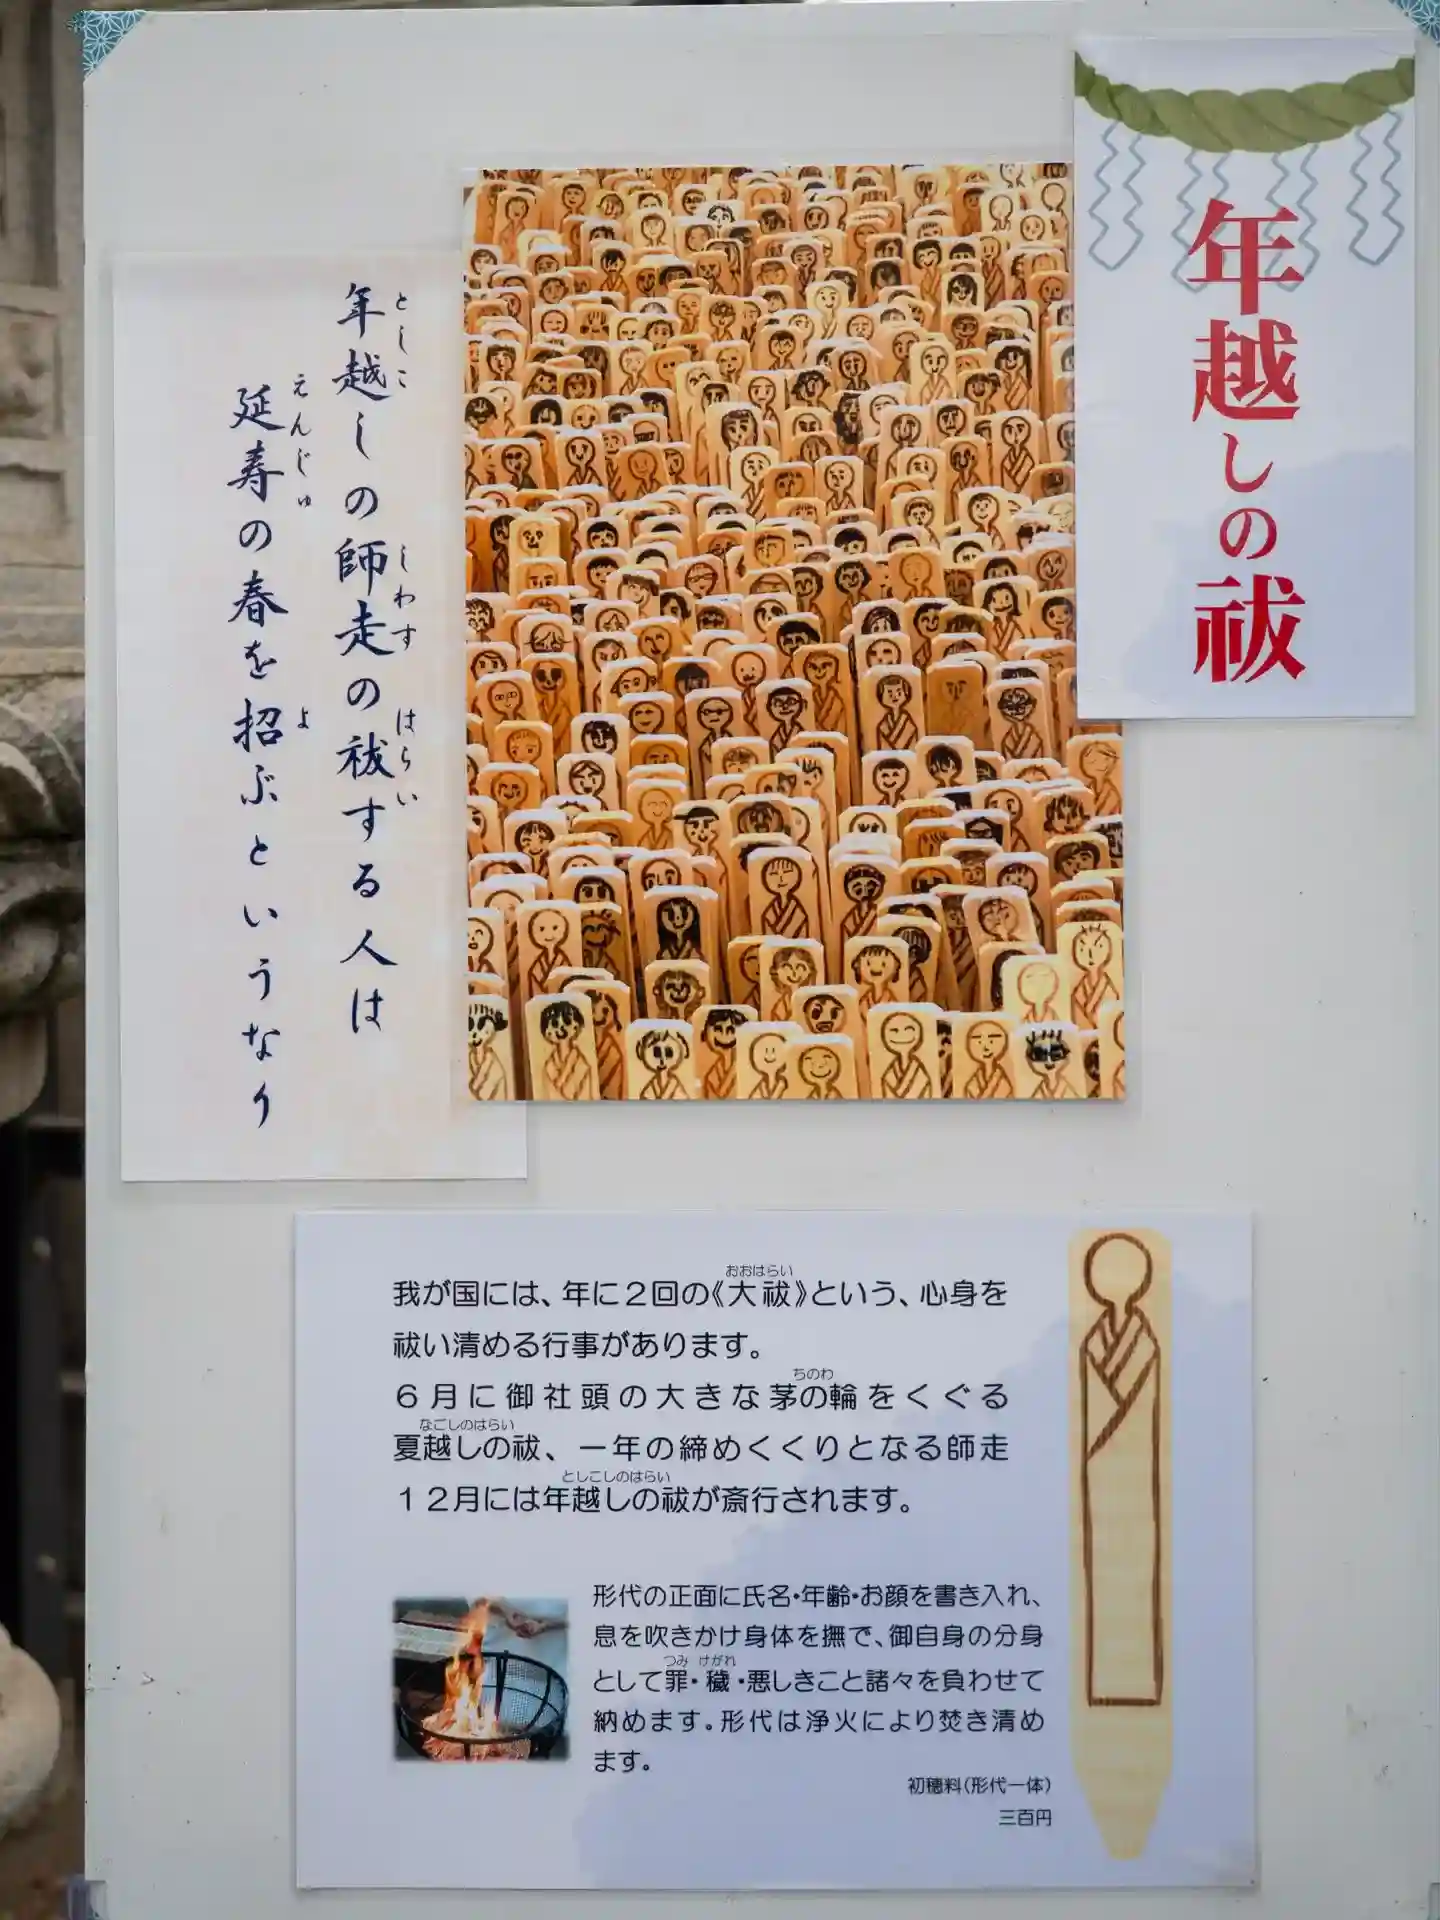 年越しの祓
年越しの師走の祓する人は
としこ
しわす
はらい
延寿の春を招ぶというなり
えんじゅ
よ
おおはらい
我が国には、年に2回の《大祓》という、心身を
祓い清める行事があります。
ちのわ
6月に御社頭の大きな茅の輪をくぐる
なごしのはらい
夏越しの祓、一年の締めくくりとなる師走
としこしのはらい
12月には年越しの祓が斎行されます。
形代の正面に氏名・年齢・お顔を書き入れ、
息を吹きかけ身体を撫で、御自身の分身
つみ けがれ
として罪・穢・悪しきこと諸々を負わせて
納めます。形代は浄火により焚き清め
ます。
初穂料(形代一体)
三百円